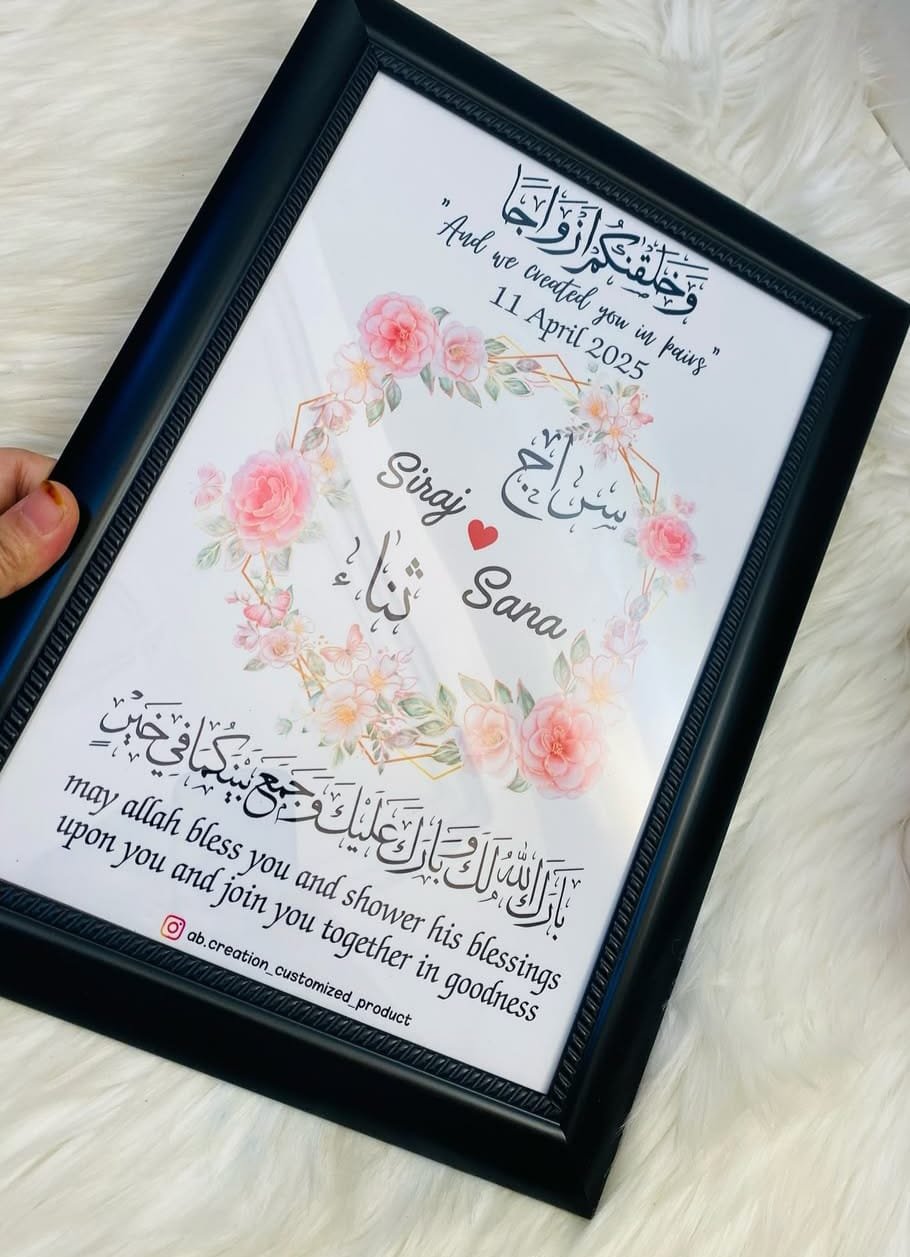 وَخَلَقْنَٰكُمْ أَزْوَاجًا
"And we created you in pairs"
11 April 2025
Siraj
سراج
ثناء
Sana
بَارَكَ اللهُ لَكَ وَبَارَكَ عَلَيْكَ وَجَمَعَ بَيْنَكُمَا فِي خَيْرٍ
may allah bless you and shower his blessings
upon you and join you together in goodness
ab.creation_customized_product